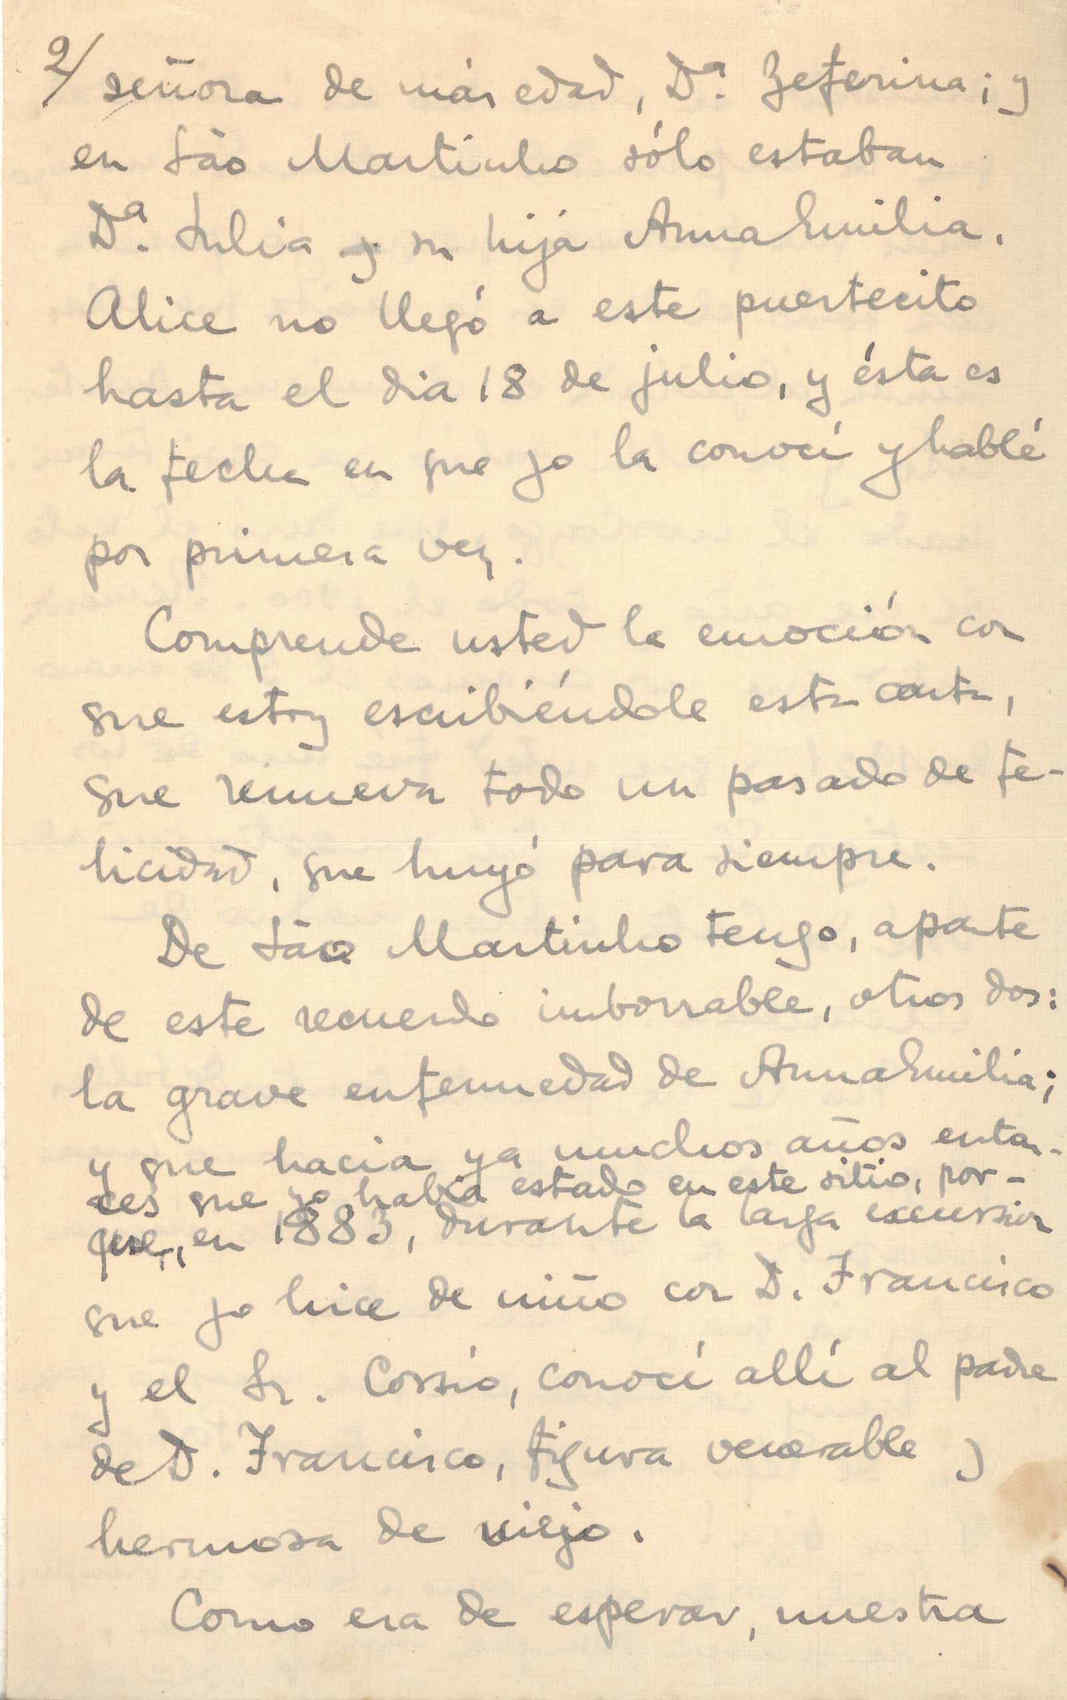 2/ señora de más edad, Dª. Zeferina; y
en São Martinho sólo estaban
Dª. Julia y su hija AnnaEmilia.
Alice no llegó a este puertecito
hasta el dia 18 de julio, y ésta es
la fecha en que yo la conocí y hablé
por primera vez.
Comprende usted la emoción con
que estoy escribiéndole esta carta,
que renueva todo un pasado de fe-
licidad, que huyó para siempre.
De São Martinho tengo, aparte
de este recuerdo imborrable, otros dos:
la grave enfermedad de AnnaEmilia;
y que hacia ya muchos años enton-
ces que yo había estado en este sitio, por-
que, en 1883, durante la larga excursion
que yo hice de niño con D. Francisco
y el Sr. Cossío, conocí allí al padre
de D. Francisco, figura venerable y
hermosa de viejo.
Como era de esperar, nuestra